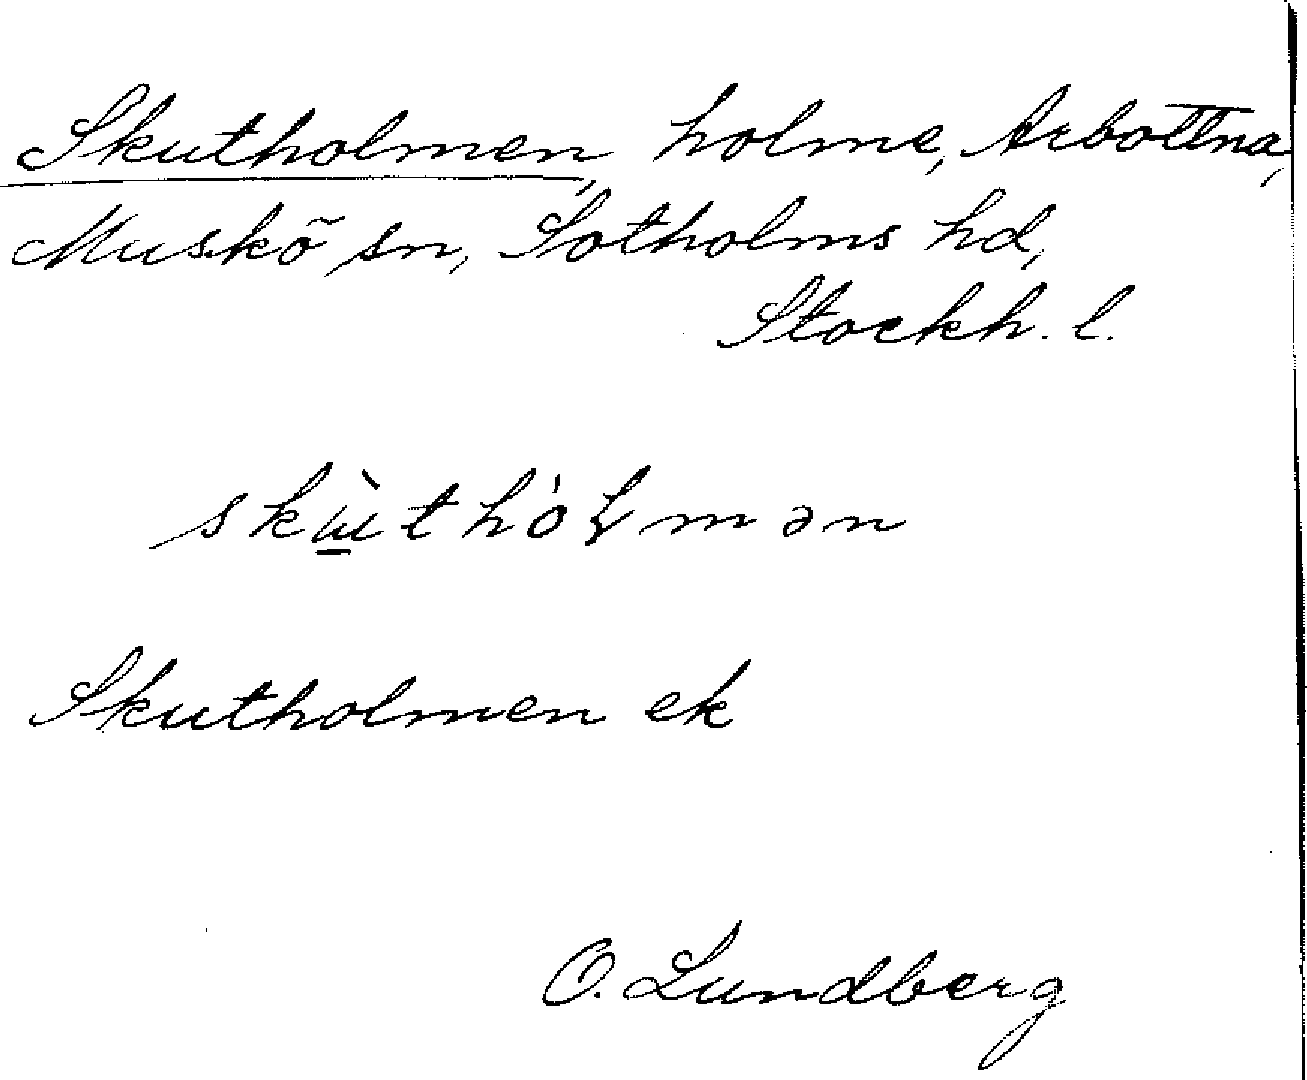 Skutholmen, holme, Arbottna,
Muskö sn, Sotholms hd,
Stockh. l.
skɯ̲̀thȯɽmən
Skutholmen ek
O. Lundberg